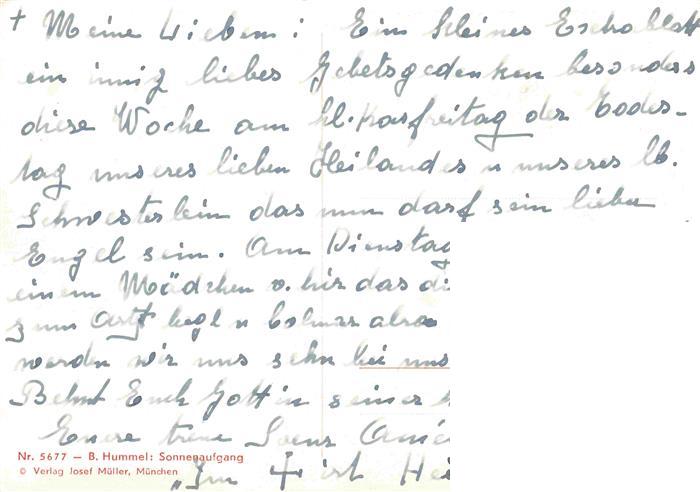 + Meine Lieben! Ein kleines
ein innig liebes Gebetsgedenken besonders
diese Woche am hl. Karfreitag der Todes-
tag unseres lieben Heilandes u unseres lb.
Schwesterlein das nun darf sein lieber
Engel sein. Am Dienstag
einem Mädchen v. hir das di
zum Arzt begl u
werden wir uns sehn bei uns
Behüt Euch Gott in seiner
Euere treue
"Im + ist Hei
Nr. 5677 — B. Hummel: Sonnenaufgang
© Verlag Josef Müller, München